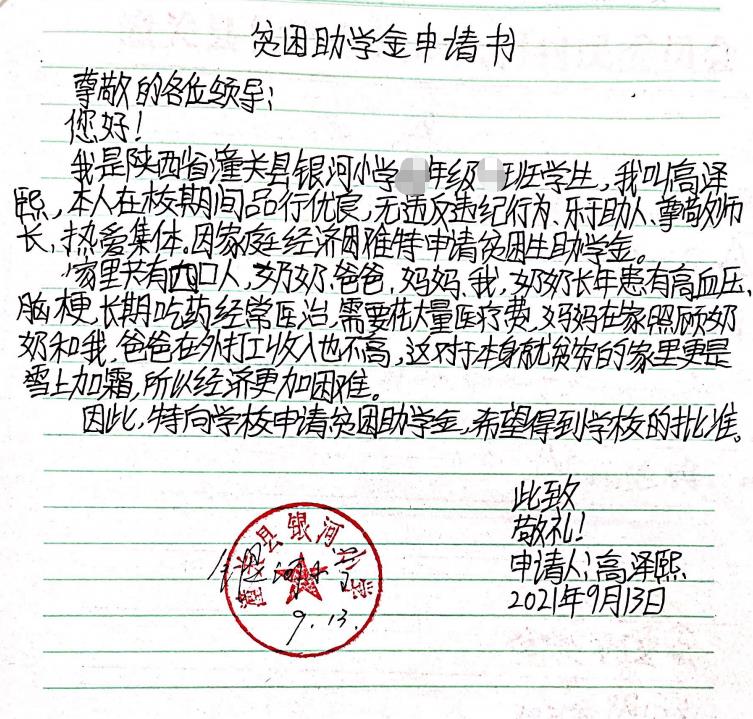 贫困助学金申请书
尊敬的各位领导：
您好！
我是陕西省潼关县银河小学 年级 班学生，我叫高泽
熙，本人在校期间品行优良，无违反违纪行为、乐于助人、尊敬师
长，热爱集体。因家庭经济困难特申请贫困生助学金。
家里共有四口人，奶奶、爸爸、妈妈、我，奶奶长年患有高血压、
脑梗，长期吃药经常医治，需要花大量医疗费，妈妈在家照顾奶
奶和我，爸爸在外打工收入也不高，这对于本身就贫穷的家里更是
雪上加霜，所以经济更加困难。
因此，特向学校申请贫困助学金，希望得到学校的批准。
此致
敬礼！
申请人：高泽熙
2021年9月13日
潼关县银河小学
9.13.